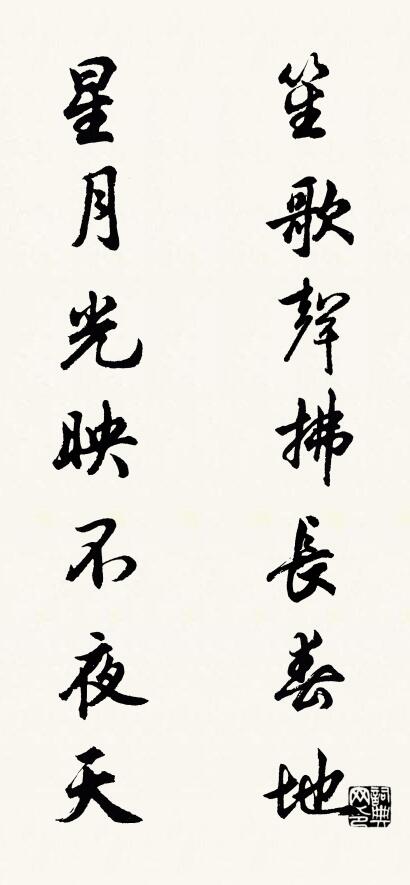 笙歌聲拂長春地
星月光映不夜天
詞典網